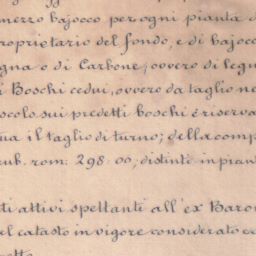 mezzo bajocco per ogni pianta d
roprietario del fondo, e di bajocc
egna o di Carbone, ovvero di legn
i Boschi cedui, ovvero da taglio ne
ascolo sui predetti boschi è riserva
na il taglio di turno; della comp
cub. rom: 298.00, distinti in pian
ti attivi spettanti all'ex Baron
el catasto in vigore considerato co